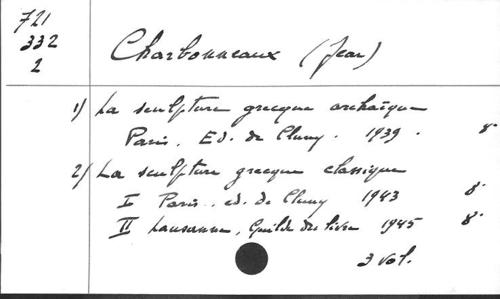 721
332
2
Charbonneaux (Jean)
1) La sculpture grecque archaïque
Paris. Ed. de Cluny. 1939. 8°
2) La sculpture grecque classique
I Paris. ed. de Cluny 1943 8°
II Lausanne, Guilde du livre 1945 8°
3 vol.